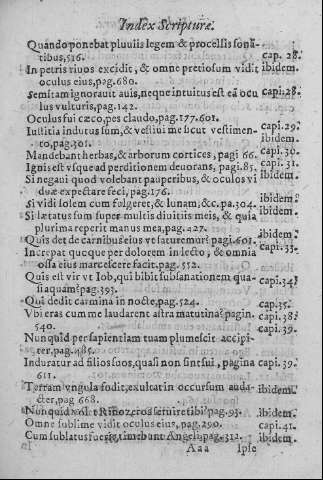 Index Scripturæ.
Quando ponebat pluuiis legem & procellis sonã- cap. 28.
tibus, 516.
In petris riuos excidit, & omne pretiosum vidit ibidem.
oculus eius, pag. 680.
Semitam ignorauit auis, neque intuitus est eã ocu capi. 28.
lus vulturis, pag. 142.
Oculus fui cæco, pes claudo, pag. 177. 601.
Iustitia indutus sum, & vestiui me sicut vestimen- capi. 29.
to, pag. 301. ibidem.
Mandebant herbas, & arborum cortices, pagi 66. capi. 30.
Ignis est vsque ad perditionem deuorans, pagi. 85. capi. 31.
Si negaui quod volebant pauperibus, & oculos vi ibidem.
duæ expectare feci, pag. 176.
Si vidi solem cum fulgeret, & lunam, &c. pa. 304. ibidem.
Si lætatus sum super multis diuitiis meis, & quia ibidem.
plurima reperit manus mea, pag. 427.
Quis det de carnibus eius vt saturemur? pagi. 601. ibidem.
Increpat quoque per dolorem in lecto, & omnia capi. 33.
ossa eius marcescere facit. pag. 552.
Quis est vir vt Iob, qui bibit subsanationem qua- capi. 34.
si aquam? pag. 393.
Qui dedit carmina in nocte, pag. 524. capi. 35.
Vbi eras cum me laudarent astra matutina? pagin. capi. 38.
540.
Nunquid per sapientiam tuam plumescit accipi- capi. 39.
ter, pag. 485.
Induratur ad filios suos, quasi non sint sui, pagina capi. 39.
611.
Terram vngula fodit, exultat in occursum auda- ibidem.
cter, pag 668.
Nunquid volet Rinoceros seruire tibi? pag. 93. ibidem.
Omne sublime vidit oculus eius, pag. 290. capi. 41.
Cum sublatus fuerit, timebunt Angeli, pag. 312. ibidem.
Aaa Ipse